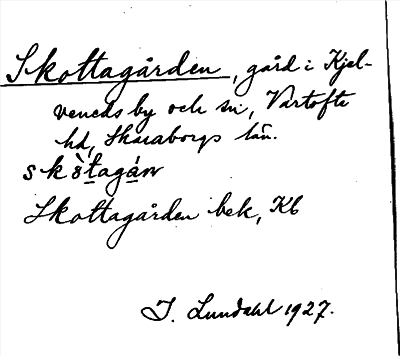 Skottagården, gård i Kjel-
veneds by och sn, Vartofta
hd, Skaraborgs län.
Skottagården bek, Kb
I. Lundahl 1927.